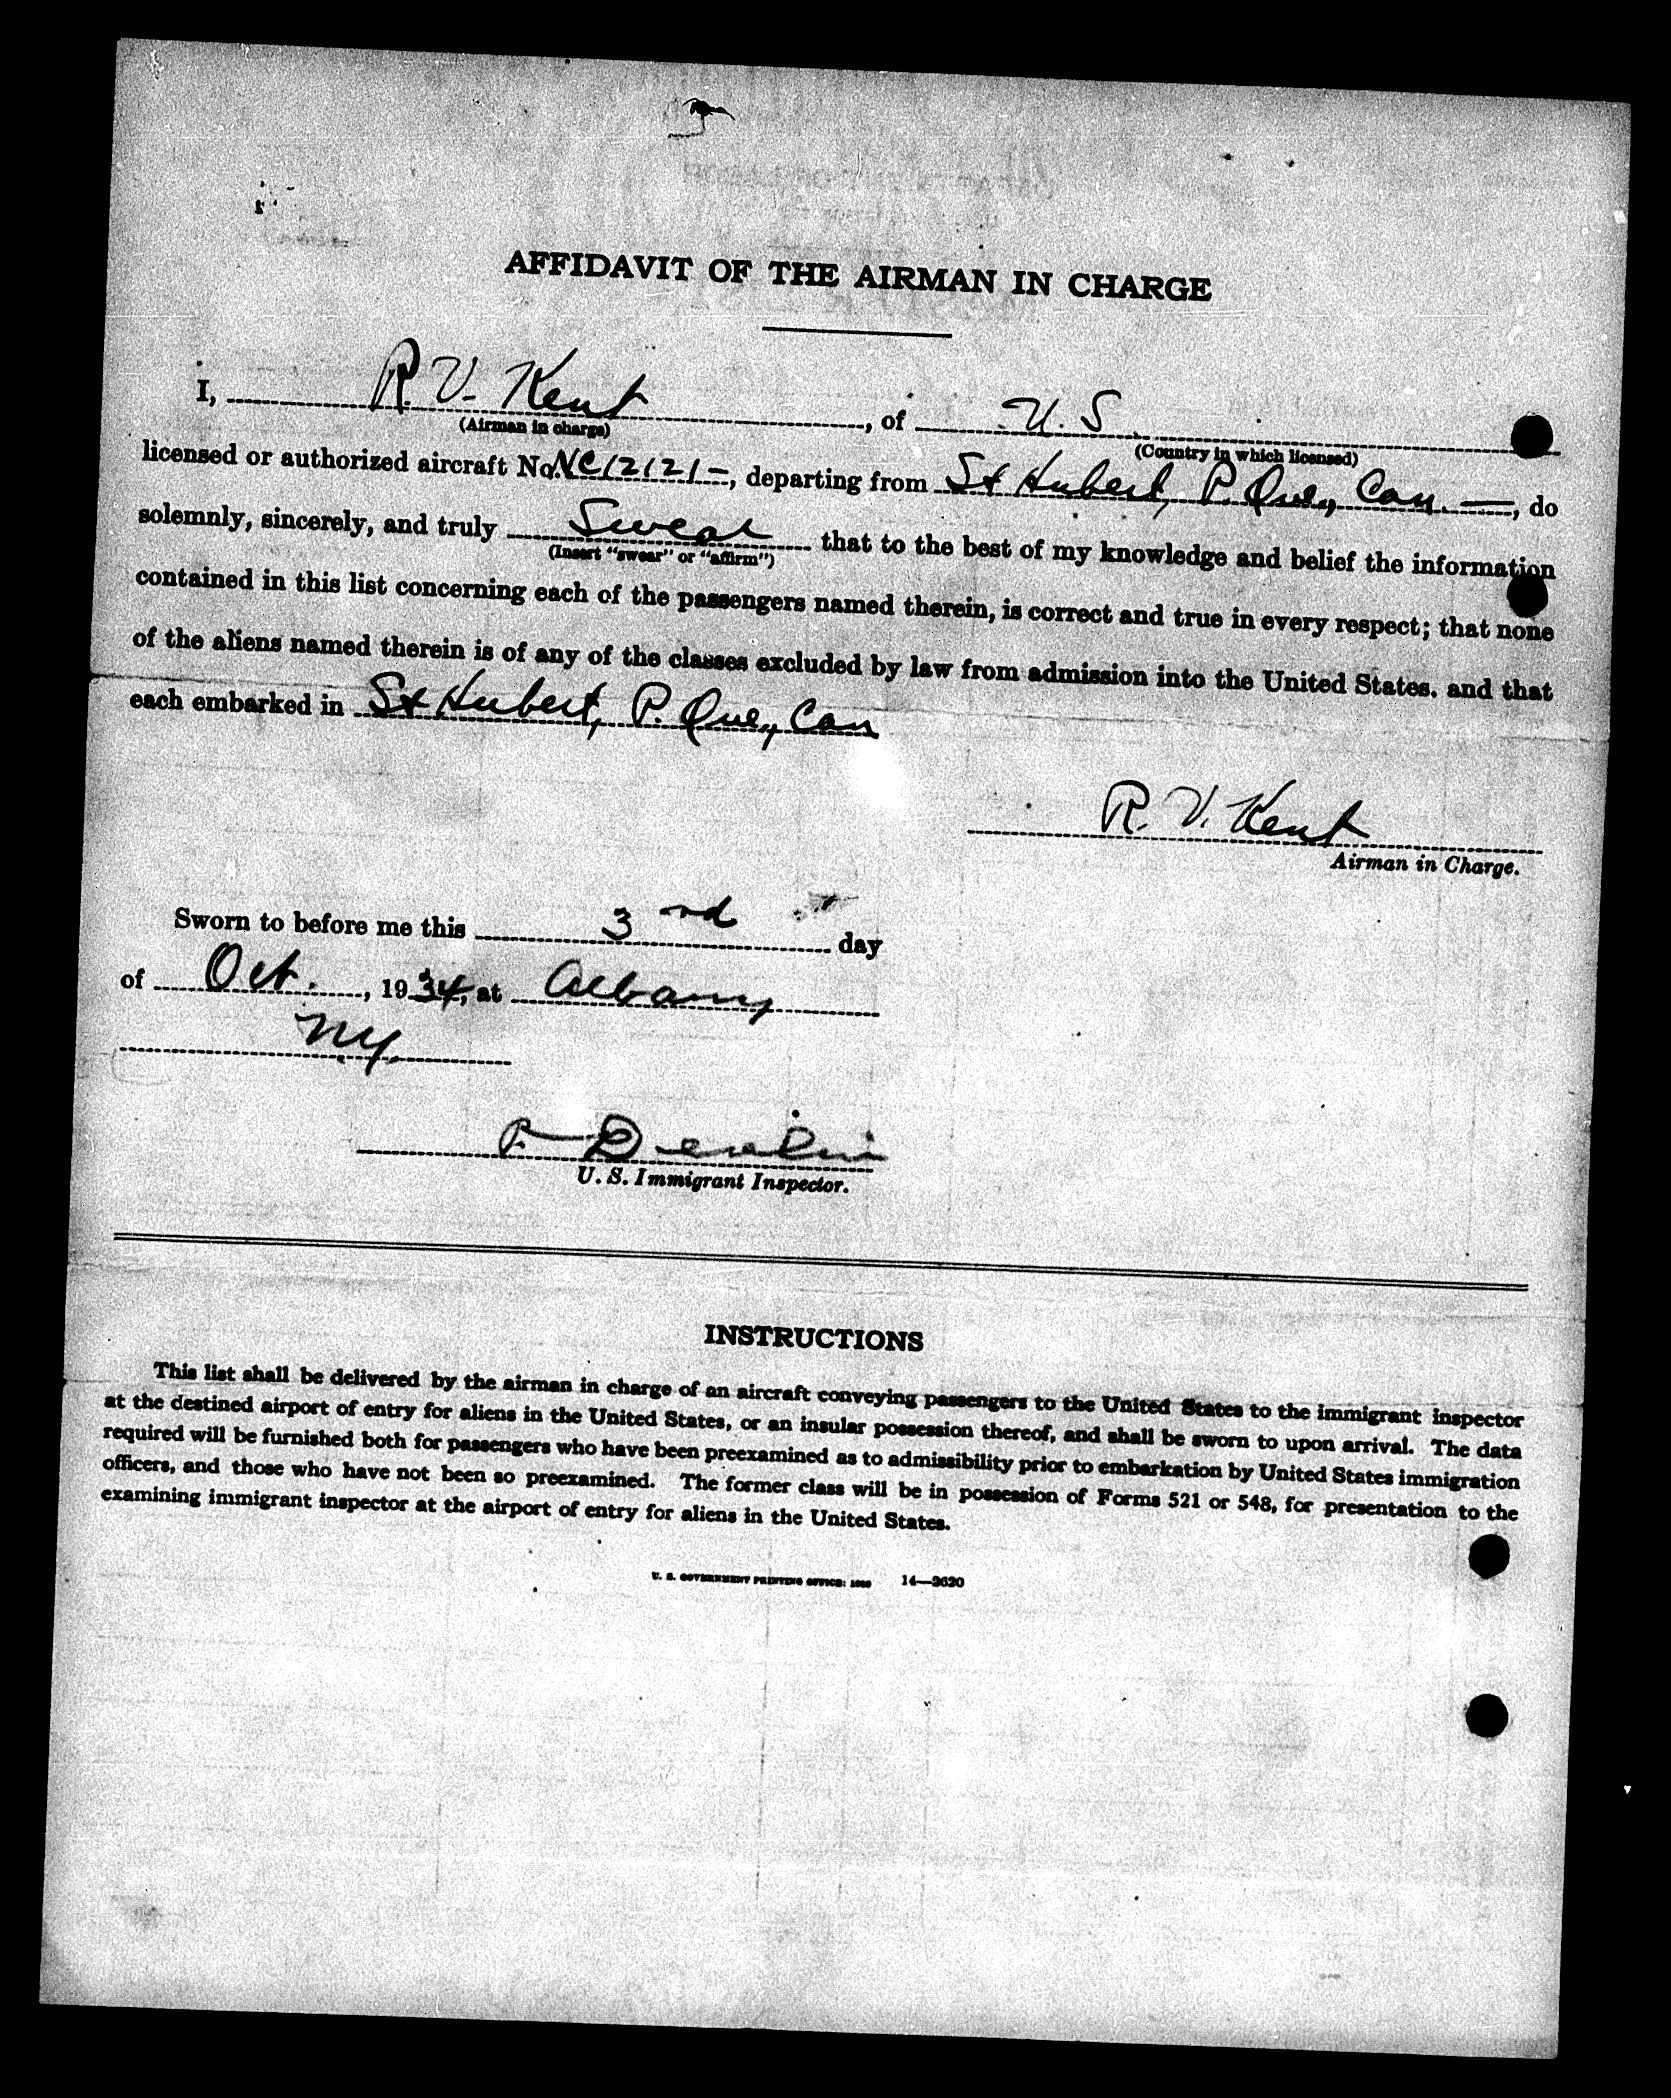 AFFIDAVIT OF THE AIRMAN IN CHARGE
I, R. V. Kent, of U. S.
(Airman in charge) (Country in which licensed)
licensed or authorized aircraft No. NC12121-, departing from St Hubert, P. Que, Can. —, do
solemnly, sincerely, and truly Swear that to the best of my knowledge and belief the information
(Insert "swear" or "affirm")
contained in this list concerning each of the passengers named therein, is correct and true in every respect; that none
of the aliens named therein is of any of the classes excluded by law from admission into the United States. and that
each embarked in St Hubert, P. Que, Can
R. V. Kent
Airman in Charge.
Sworn to before me this 3rd day
of Oct., 1934, at Albany
NY.
P.
U. S. Immigrant Inspector.
INSTRUCTIONS
This list shall be delivered by the airman in charge of an aircraft conveying passengers to the United States to the immigrant inspector
at the destined airport of entry for aliens in the United States, or an insular possession thereof, and shall be sworn to upon arrival. The data
required will be furnished both for passengers who have been preexamined as to admissibility prior to embarkation by United States immigration
officers, and those who have not been so preexamined. The former class will be in possession of Forms 521 or 548, for presentation to the
examining immigrant inspector at the airport of entry for aliens in the United States.
U. S. GOVERNMENT PRINTING OFFICE: 14—2620